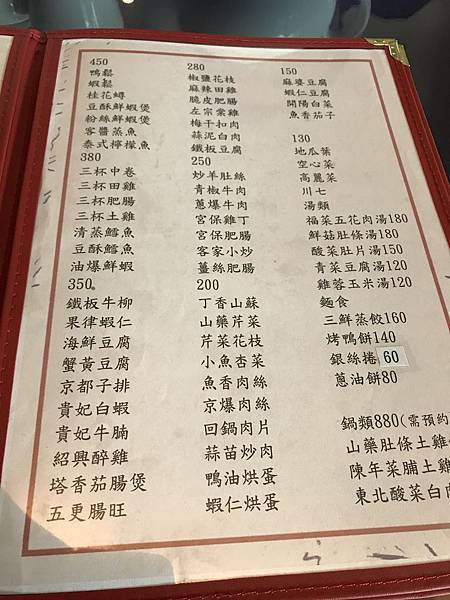 450
鴨鬆
蝦鬆
桂花蟳
豆酥鮮蝦煲
粉絲鮮蝦煲
客醬蒸魚
泰式檸檬魚
380
三杯中卷
三杯田雞
三杯肥腸
三杯土雞
清蒸鱈魚
豆酥鱈魚
油爆鮮蝦
350
鐵板牛柳
果律蝦仁
海鮮豆腐
蟹黃豆腐
京都子排
貴妃白蝦
貴妃牛腩
紹興醉雞
塔香茄腸煲
五更腸旺
280
椒鹽花枝
麻辣田雞
脆皮肥腸
左宗棠雞
梅干扣肉
蒜泥白肉
鐵板豆腐
250
炒羊肚絲
青椒牛肉
蔥爆牛肉
宮保雞丁
宮保肥腸
客家小炒
薑絲肥腸
200
丁香山蘇
山藥芹菜
芹菜花枝
小魚杏菜
魚香肉絲
京爆肉絲
回鍋肉片
蒜苗炒肉
鴨油烘蛋
蝦仁烘蛋
150
麻婆豆腐
蝦仁豆腐
開陽白菜
魚香茄子
130
地瓜葉
空心菜
高麗菜
川七
湯類
福菜五花肉湯180
鮮菇肚條湯180
酸菜肚片湯150
青菜豆腐湯120
雞蓉玉米湯120
麵食
三鮮蒸餃160
烤鴨餅140
銀絲捲60
蔥油餅80
鍋類880(需預約
山藥肚條土雞
陳年菜脯土雞
東北酸菜白肉